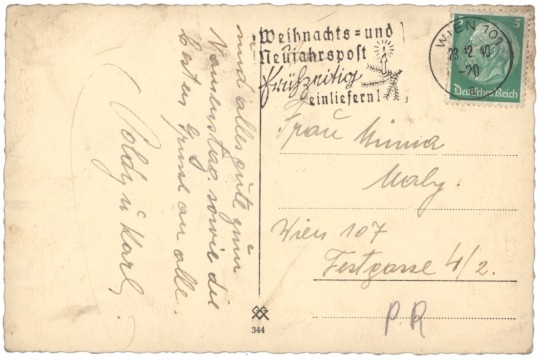 und alles gute zum
Namenstag sowie die
besten Grüße an alle.
Poldy u Karl.
Weihnachts= und
Neujahrspost
frühzeitig
einliefern!
WIEN 107
23.12.40
-20
5
Deutsches Reich
Frau Minna
Maly.
Wien 107
Festgasse 4/2.
P.R
344